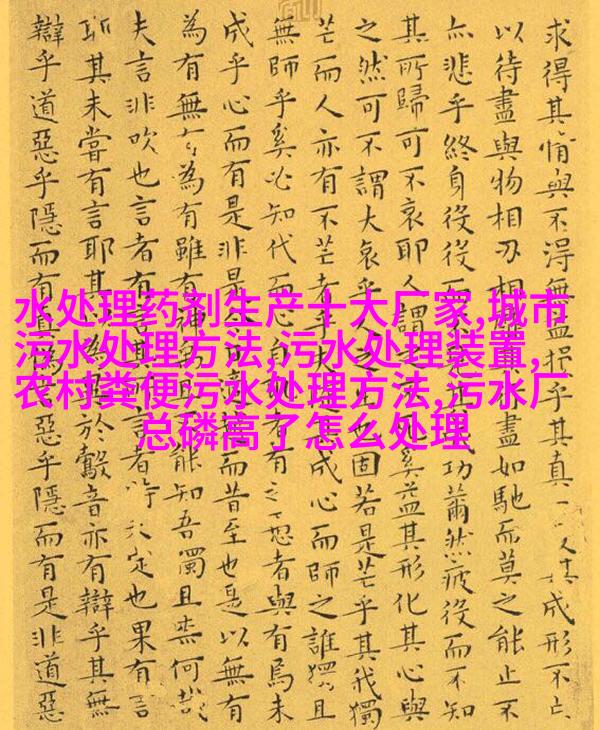 水处理药剂生产十大厂家,城市
污水处理方法,污水处理装置,
农村粪便污水处理方法,污水厂
总磷高了怎么处理
求得其情與不得無益損乎其真其成形不亡
以待盡與物相刃相盡如馳而莫之能止不
亦悲乎終身役役而功薾然疲役而不知
其所歸可不哀耶人謂之奚益其形化其心與
之然可不謂大哀乎人之生也固若是芒乎其我獨
芒而人亦有不芒者乎夫成心而師之誰獨且
無師乎奚必知代而心自者有之愚者與有焉未
成乎心而有是非是而昔至也是以無有
為有無有為有雖有神禹能知吾獨且柰何哉
夫言非吹也言者有言其言者特未定也果有言
耶其未嘗有言耶其以為於鷇音亦有辯乎其無
辯乎道惡乎隱而有真偽惡乎隱而有是非道惡